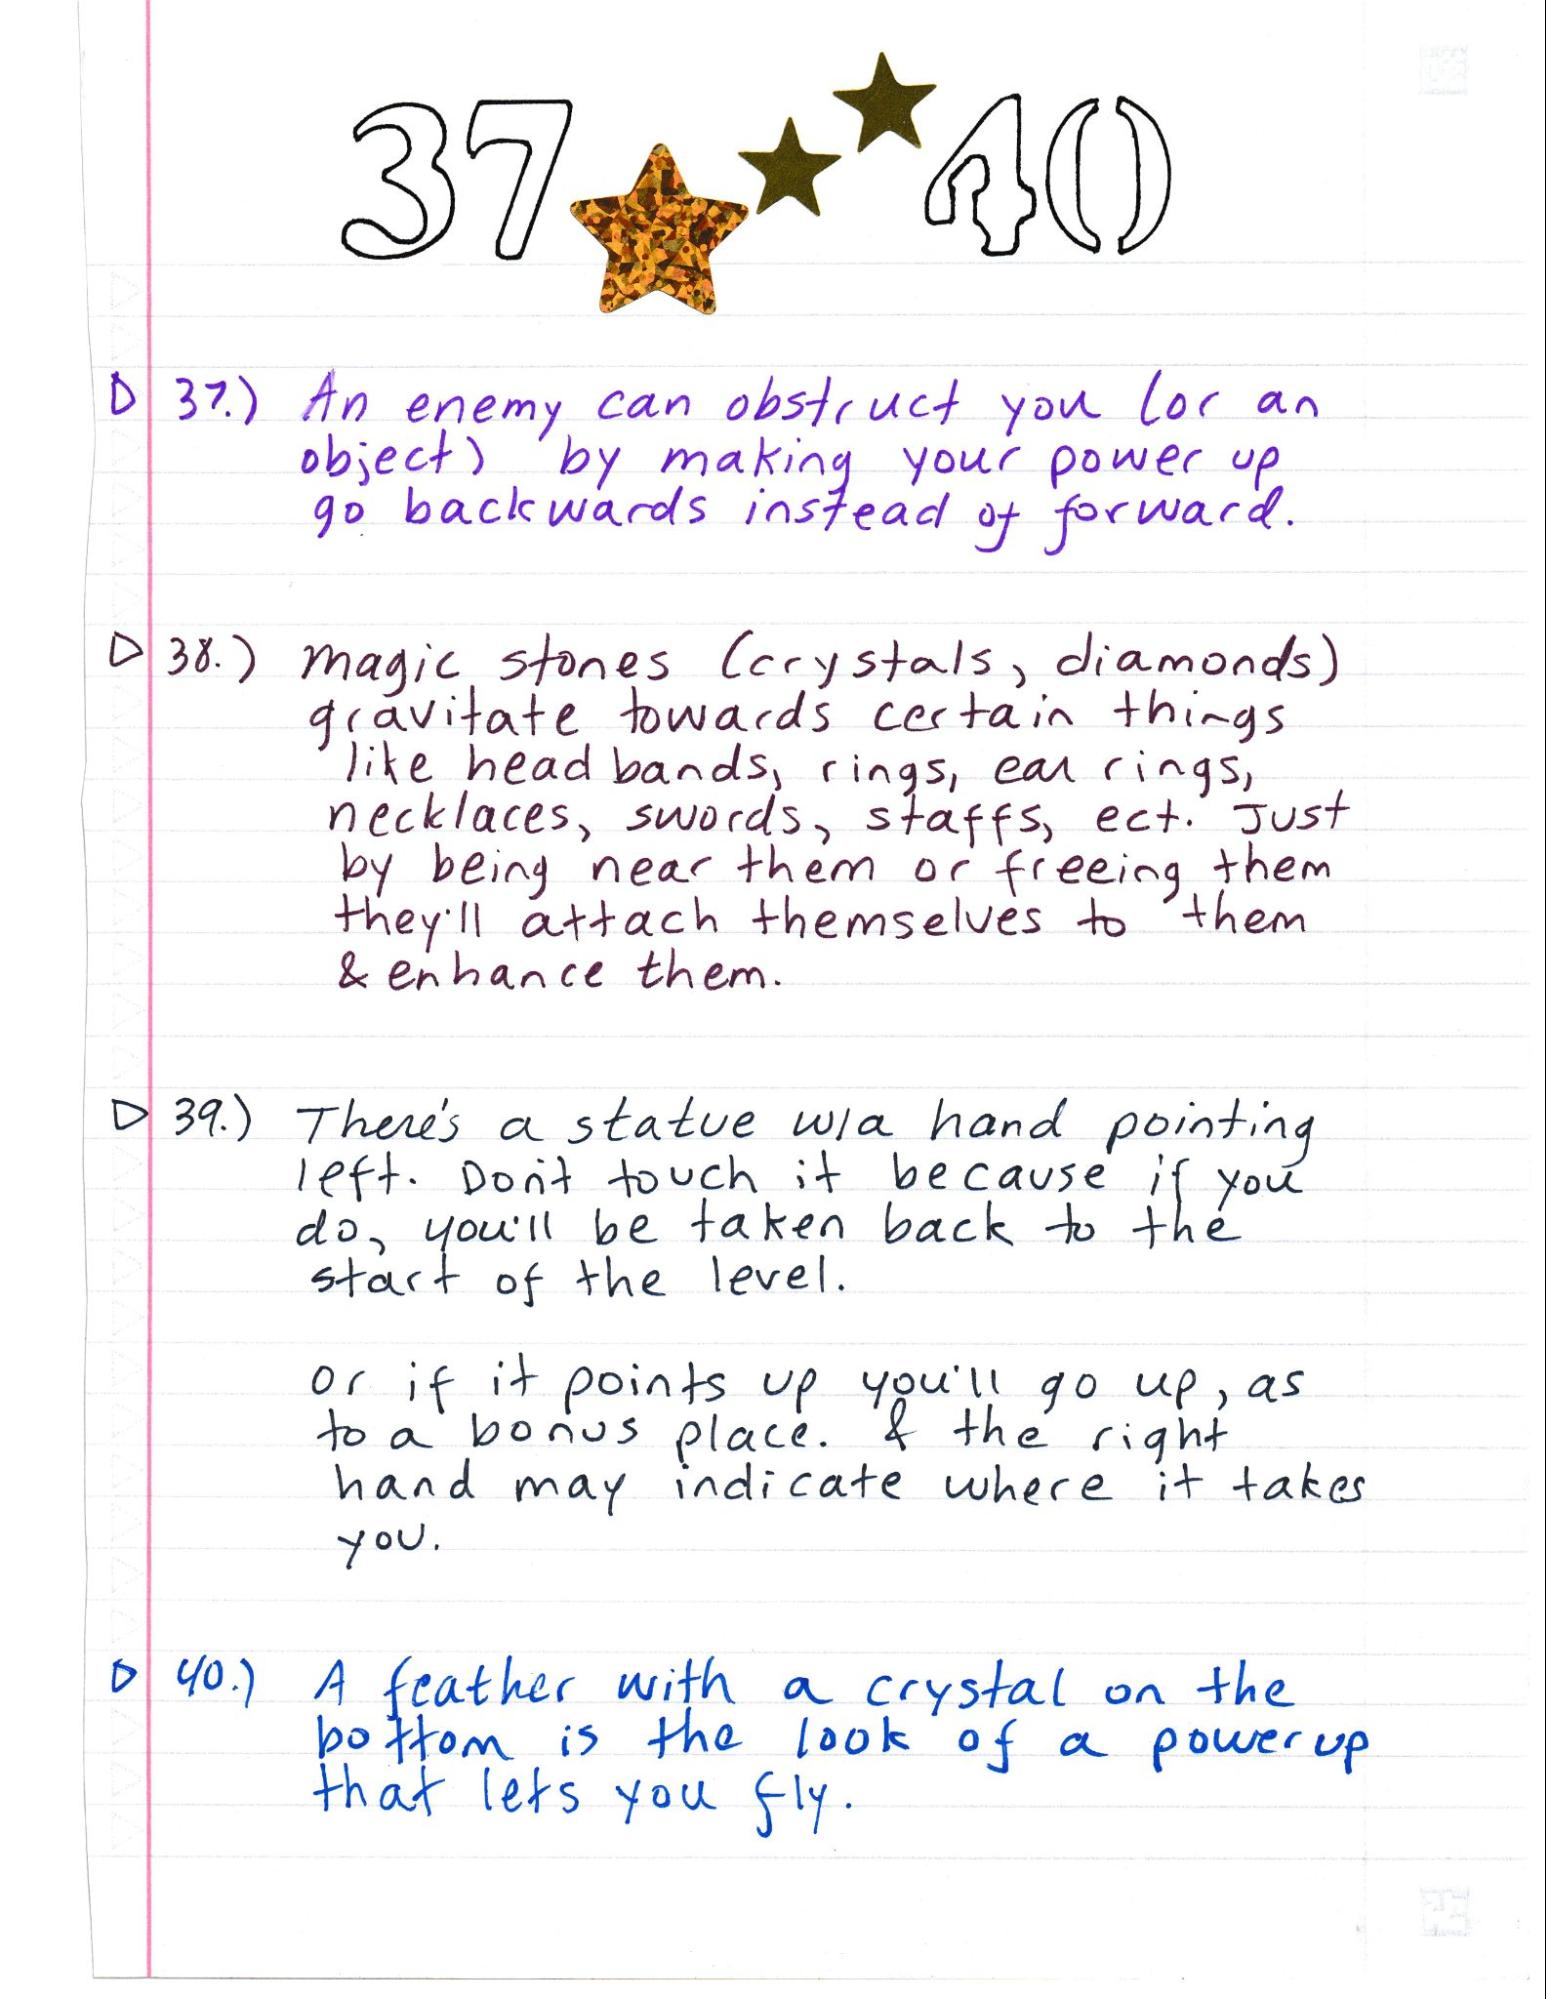 37 40
D 37.) An enemy can obstruct you (or an
object) by making your power up
go backwards instead of forward.
D 38.) Magic stones (crystals, diamonds)
gravitate towards certain things
like head bands, rings, ear rings,
necklaces, swords, staffs, ect. Just
by being near them or freeing them
they'll attach themselves to them
& enhance them.
D 39.) There's a statue w/a hand pointing
left. Don't touch it because if you
do, you'll be taken back to the
start of the level.
or if it points up you'll go up, as
to a bonus place. & the right
hand may indicate where it takes
you.
D 40.) A feather with a crystal on the
bottom is the look of a power up
that lets you fly.